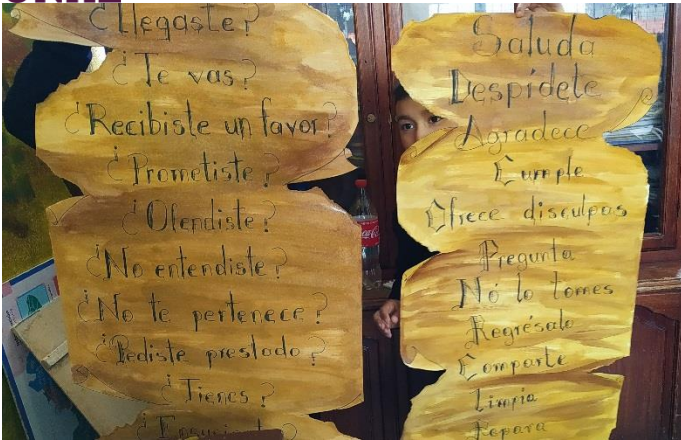 ¿Llegaste?
¿Te vas?
¿Recibiste un favor?
¿Prometiste?
¿Ofendiste?
¿No entendiste?
¿No te pertenece?
¿Pediste prestado?
¿Tienes?
Saluda
Despídete
Agradece
Cumple
Ofrece disculpas
Pregunta
No lo tomes
Regrésalo
Comparte
Limpia
Repara
Coca-Cola